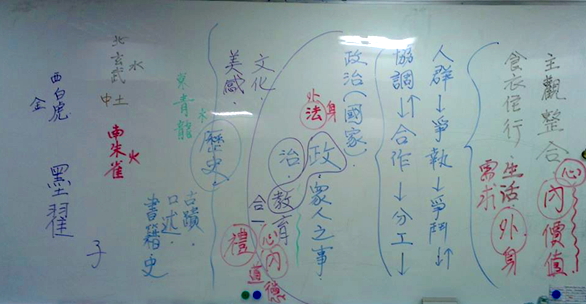 主觀整合
心
內價值
食衣住行
生活
需求
外
身
人群↓爭執↓爭鬥⇅
協調⇅合作↓分工↓
政治(國家)
政:眾人之事
外
法
身
治:
教育
合一
心
內
德
禮
道
文化.
美感.
歷史
古蹟.
口述.
書籍史
水
東青龍
北玄武
水
中土
南朱雀
火
西白虎
金
墨翟
子